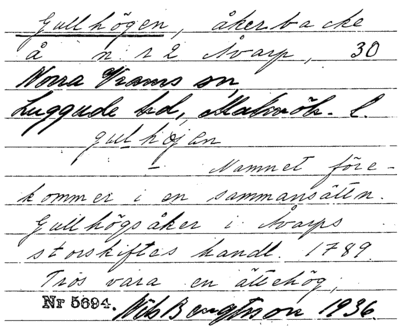 Gullhögen, åkerbacke
å n:r 2 Åvarp, 30
Norra Vrams sn,
Luggude hd, Malmöh. l.
gulhøjan
– Namnet före-
kommer i en sammansättn.
Gullhögsåker i Åvarps
storskiftes handl. 1789.
Tros vara en ättehög,
Nr 5694. Nils Bengtsson 1936.